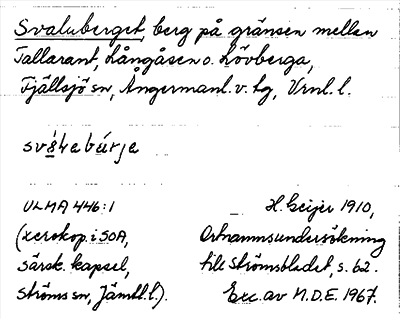 Svaluberget, berg på gränsen mellan
Tallarant, Långåsen o. Lövberga,
Fjällsjö sn, Ångermanl. v. tg, Vrnl. l.
ULMA 446:1
(xerokop. i SOA,
särsk. kapsel,
Ströms sn, Jämtl. l.).
H. Geijer 1910,
Ortnamnsundersökning
till Strömsbladet, s. 62.
Exc. av M.D.E. 1967.